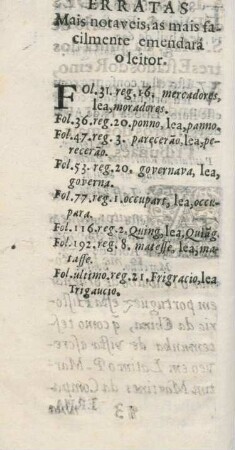 ERRATAS
Mais notaveis, as mais fa-
cilmente emendará
o leitor.
Fol. 31. reg. 16. mercadores,
lea, moradores.
Fol. 36. reg. 20. ponno, lea, panno.
Fol. 47. reg. 3. pareçerão. lea, pe-
recerão.
Fol. 53. reg. 20. governava, lea,
governa.
Fol. 77. reg. 1. occupart, lea, occu-
para.
Fol. 116. reg. 2. Quing, lea, Quãg.
Fol. 192. reg. 8. matesse, lea, ma-
tasse.
Fol. ultimo. reg. 21. Frigracio, lea
Trigaucio.